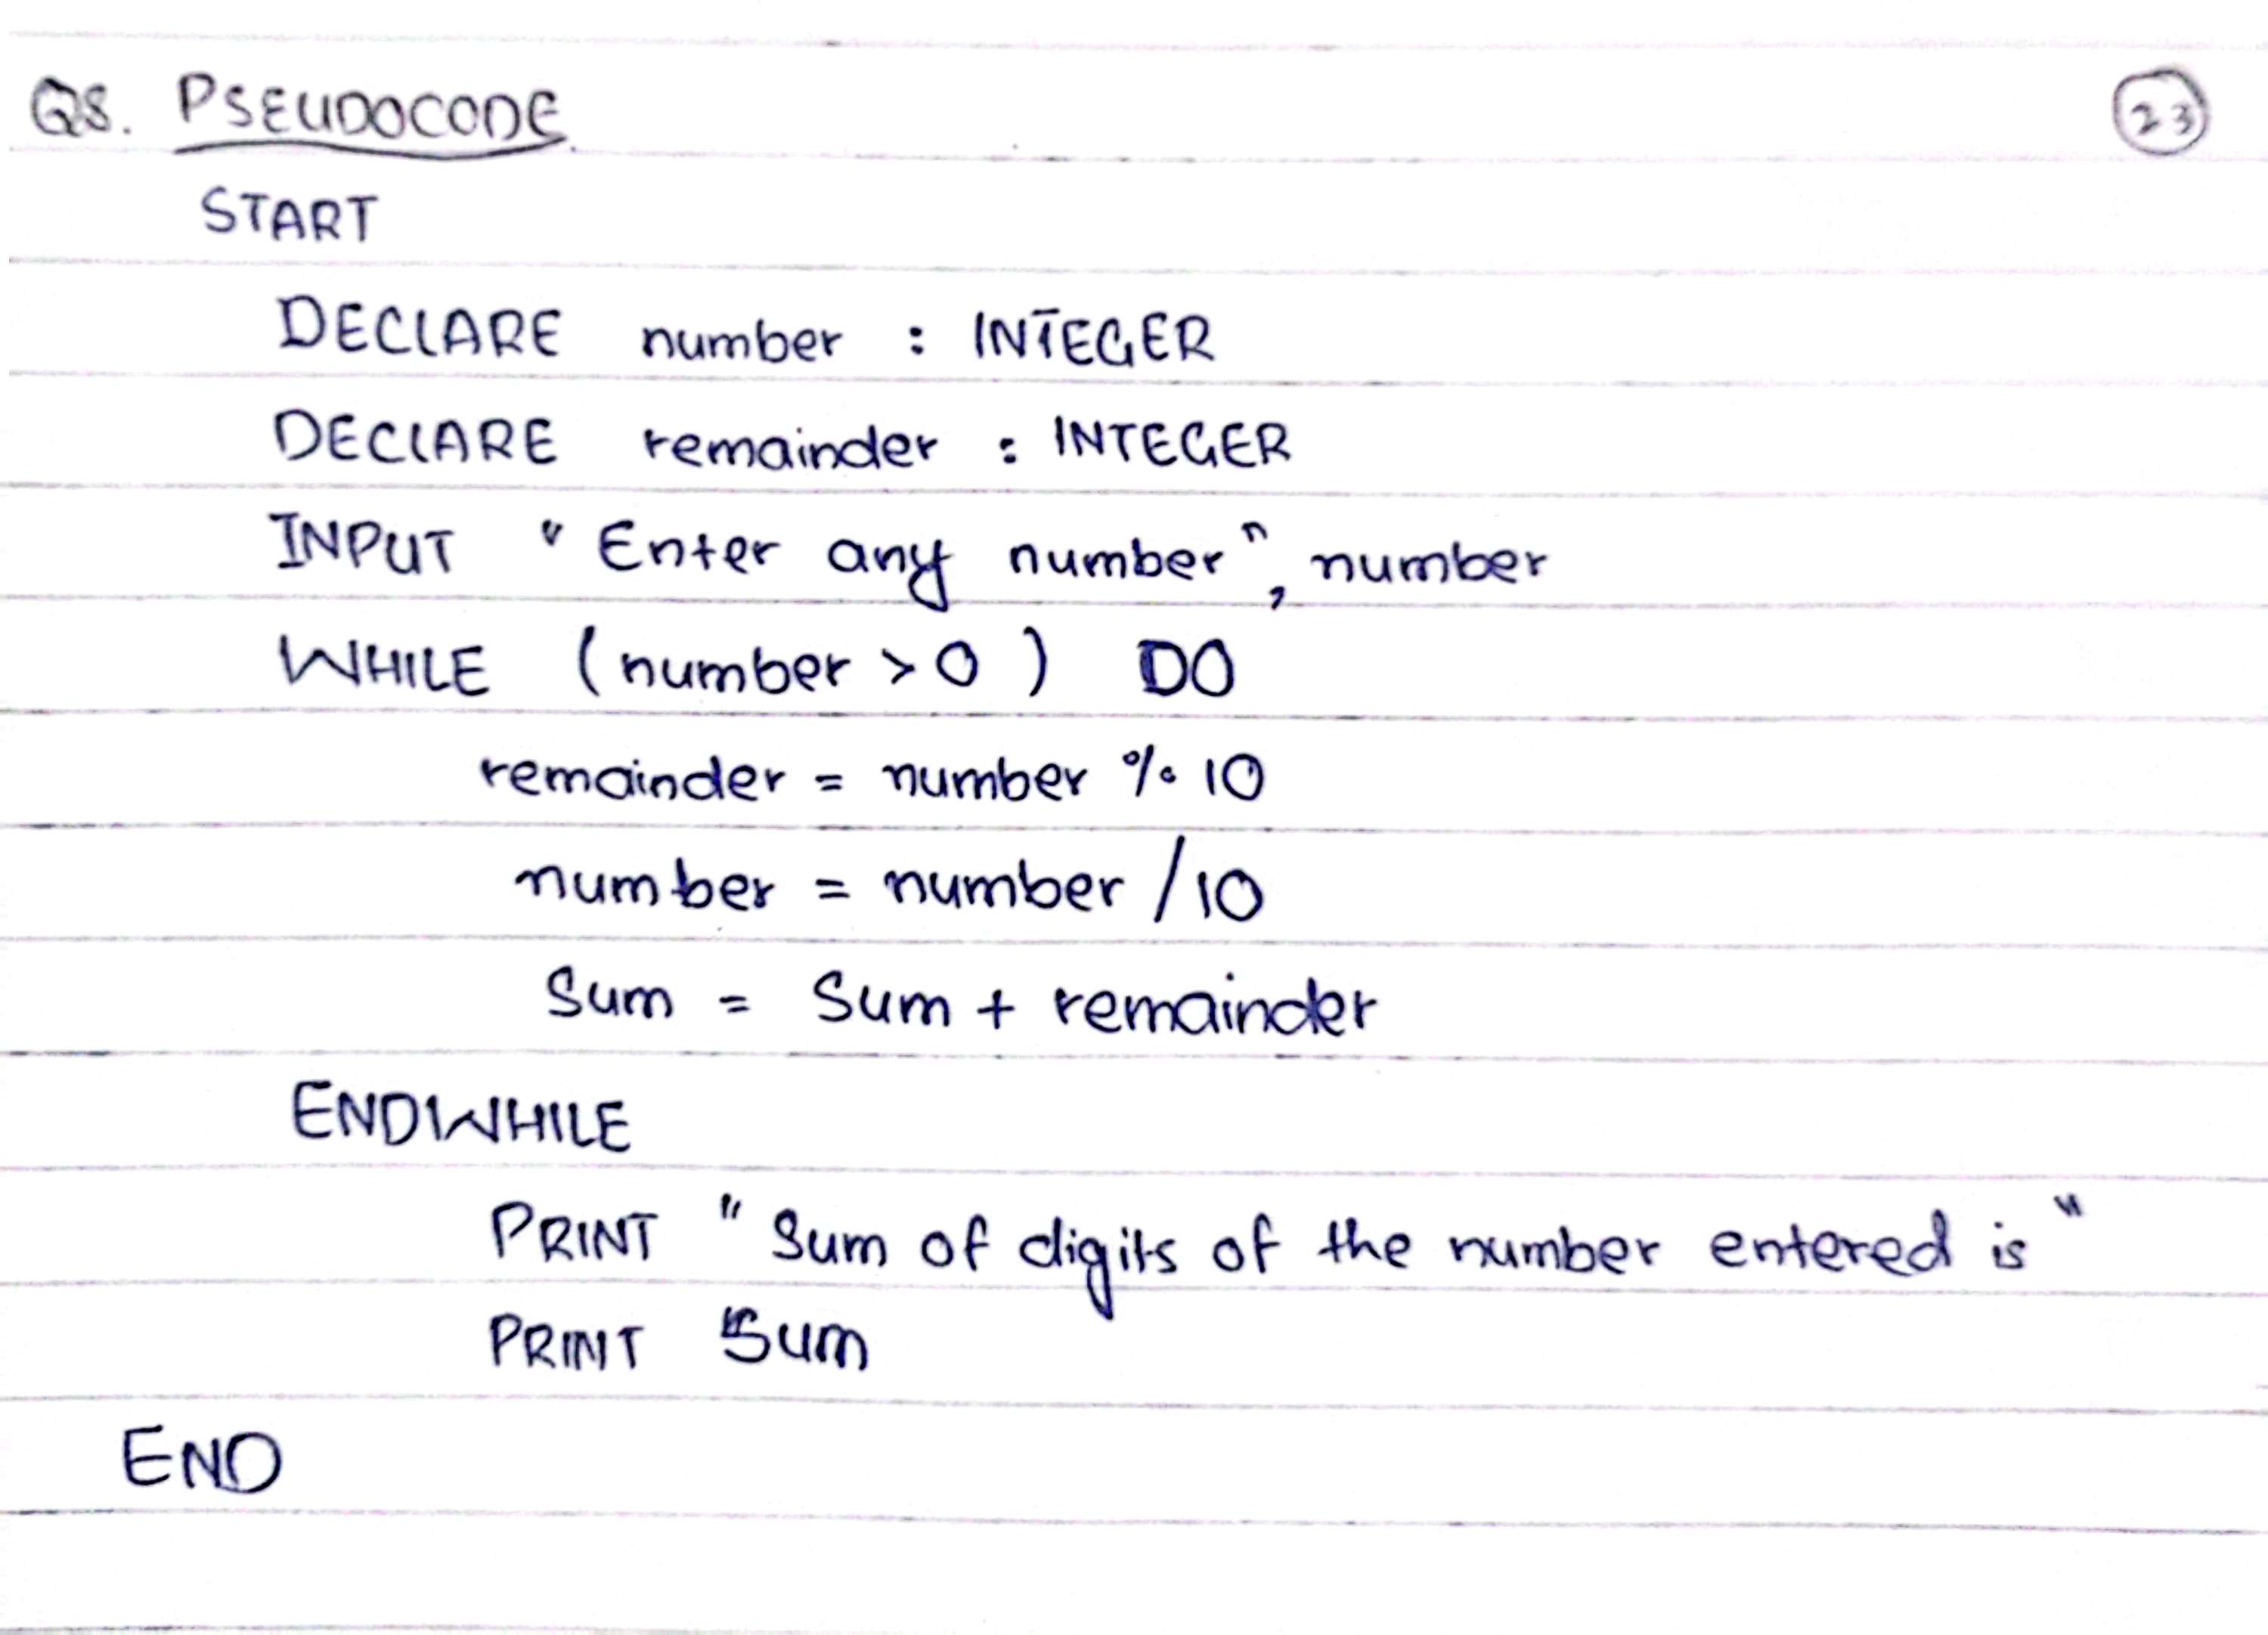 Q8. PSEUDOCODE
23
START
DECLARE number : INTEGER
DECLARE remainder : INTEGER
INPUT "Enter any number", number
WHILE (number > 0) DO
remainder = number % 10
number = number / 10
Sum = Sum + remainder
ENDWHILE
PRINT "Sum of digits of the number entered is"
PRINT Sum
END